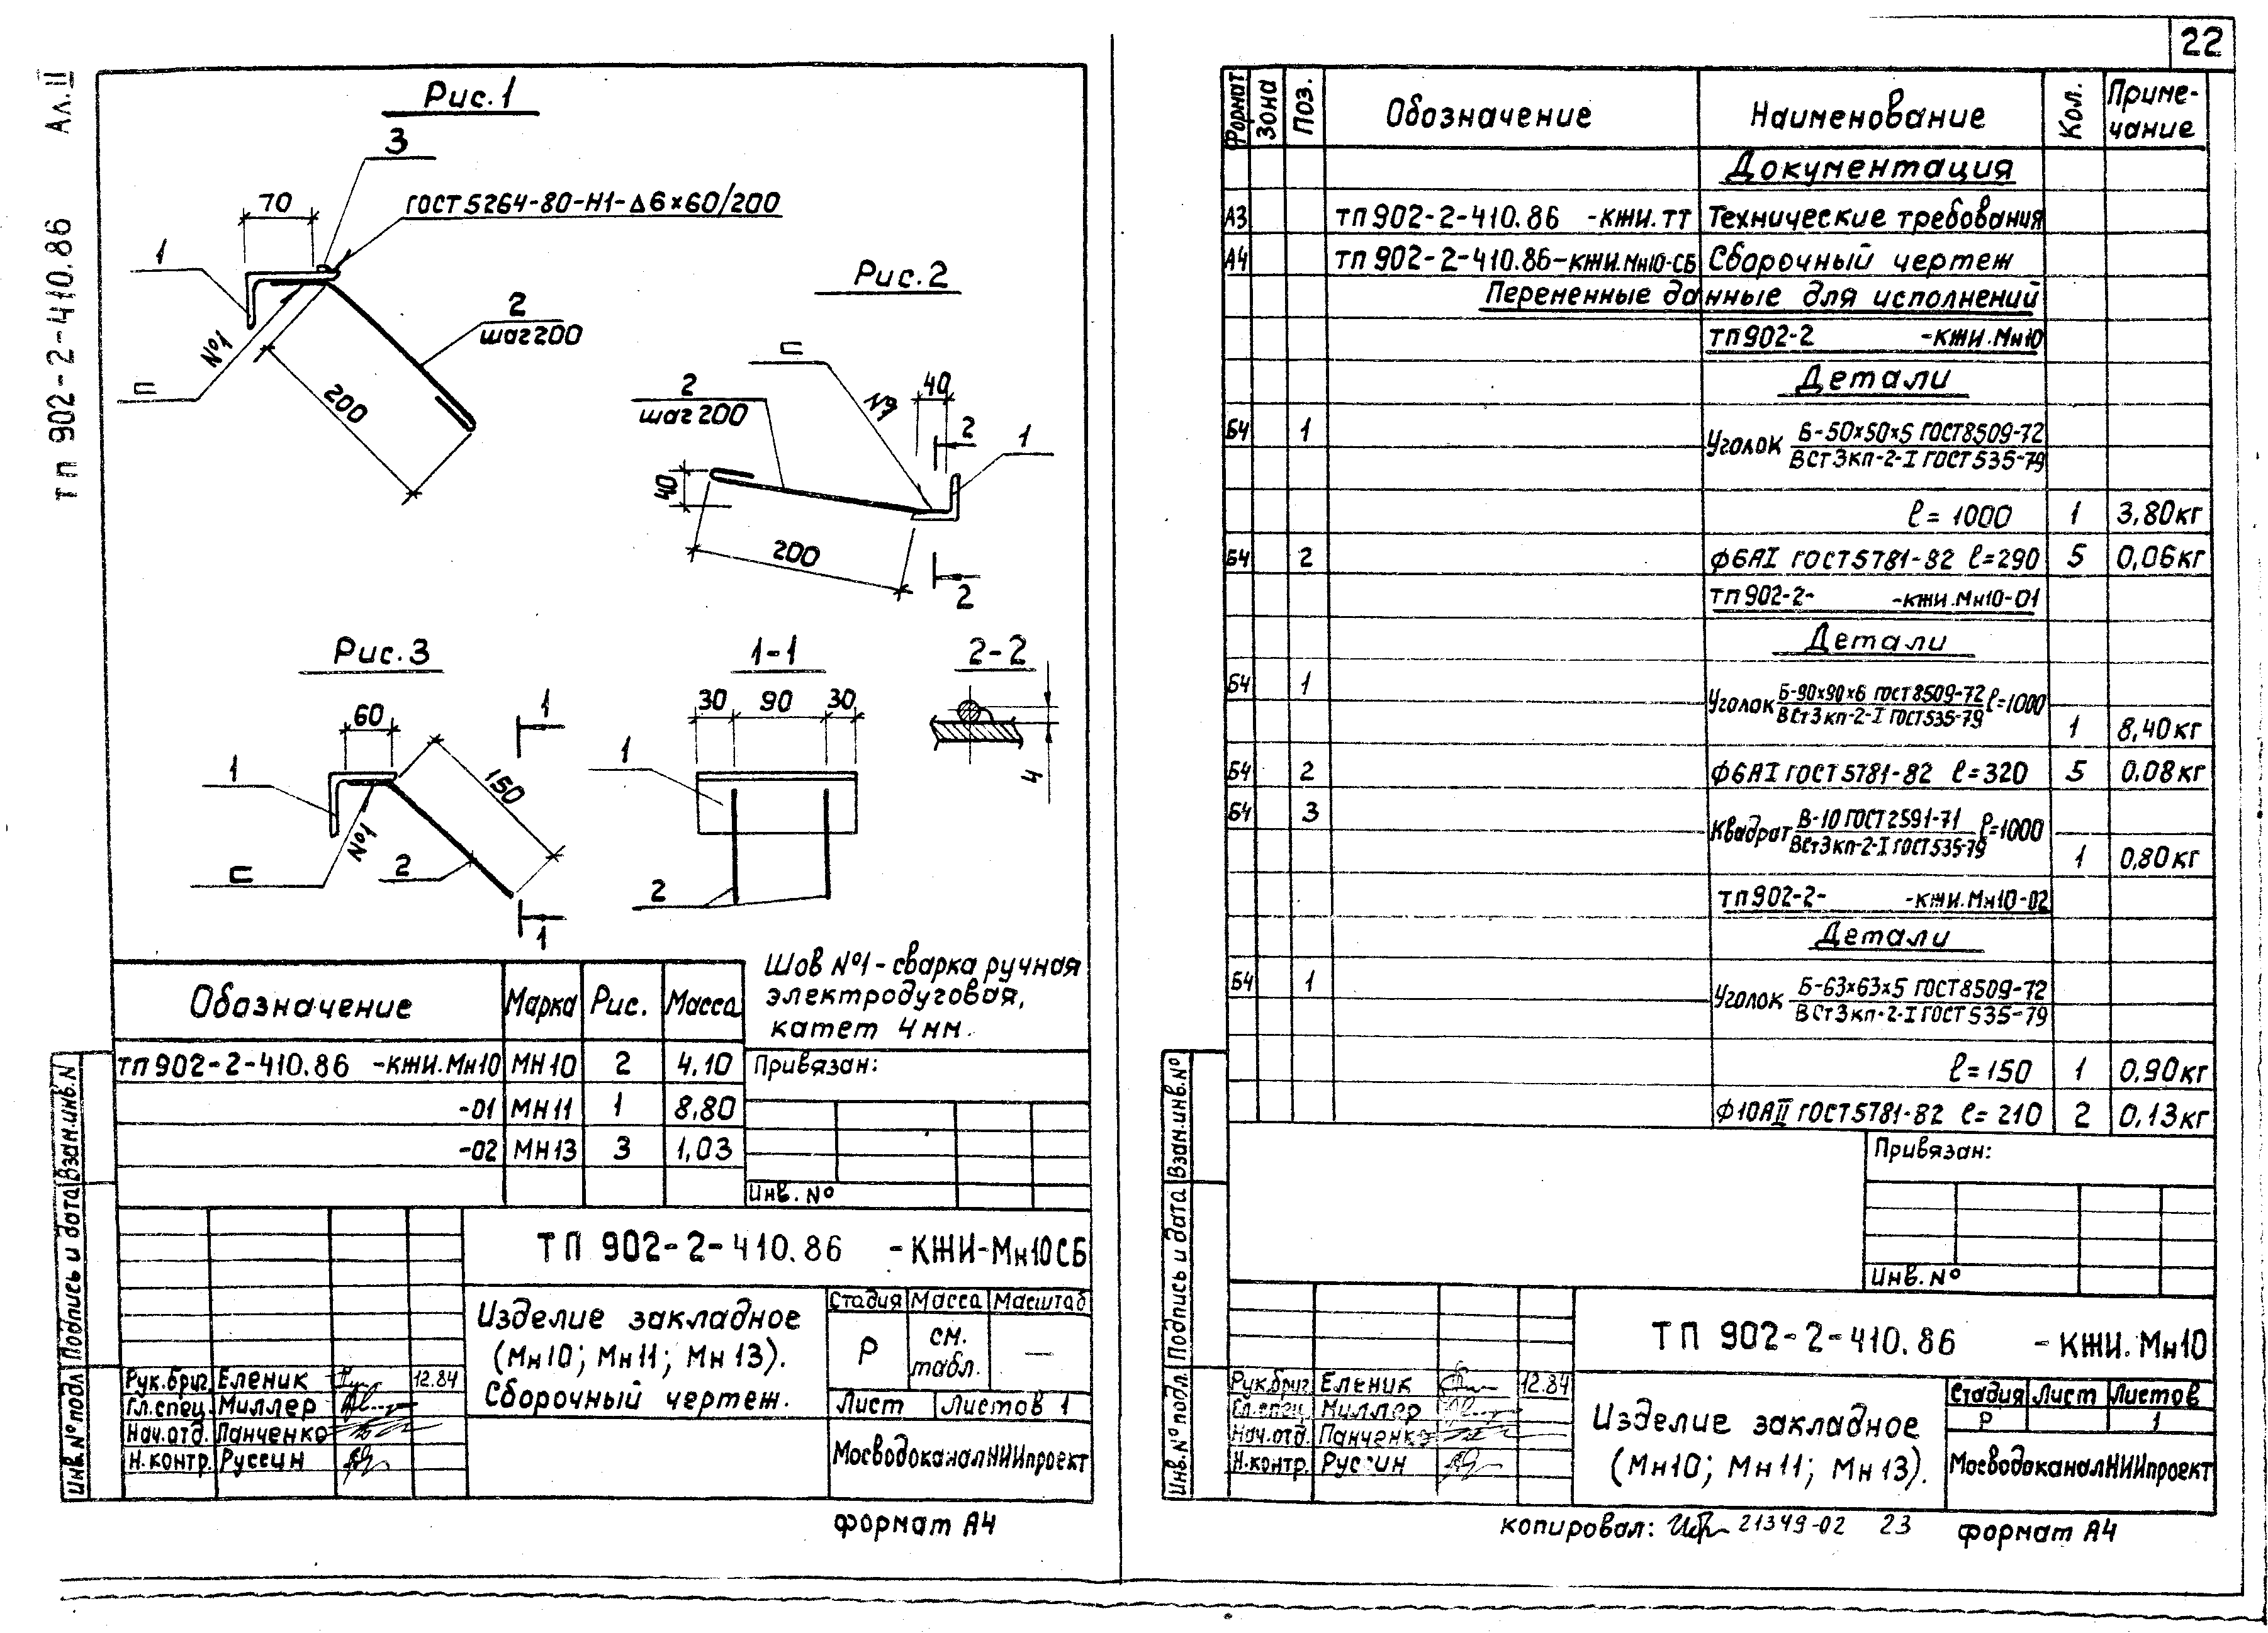 Ал. II
ТП 902-2-410.86
Рис.1
3
70
ГОСТ 5264-80-Н1-Δ6×60/200
1
2
шаг 200
№1
200
Рис.2
2
шаг 200
№1
40
2
1
40
200
2
Рис.3
60
1
1
150
№1
2
1
1-1
30 90 30
1
2
2-2
4
Шов №1 - сварка ручная
электродуговая,
катет 4мм.
Обозначение Марка Рис. Масса
ТП 902-2-410.86 -КЖИ.Мн10 МН10 2 4,10
-01 МН11 1 8,80
-02 МН13 3 1,03
Привязан:
Инв. №
ТП 902-2-410.86 -КЖИ-Мн10СБ
Изделие закладное
(Мн10; Мн11; Мн13).
Сборочный чертеж.
Стадия Масса Масштаб
Р см. табл. —
Лист Листов 1
МосводоканалНИИпроект
Рук.бриг. Еленик 12.84
Гл.спец. Миллер
Нач.отд. Панченко
Н.контр. Руссин
Инв.№ подл. Подпись и дата Взам.инв.№
формат А4
22
Формат Зона Поз. Обозначение Наименование Кол. Приме-
чание
Документация
А3 ТП 902-2-410.86 -КЖИ.ТТ Технические требования
А4 ТП 902-2-410.86-КЖИ.Мн10-СБ Сборочный чертеж
Переменные данные для исполнений
ТП902-2 -КЖИ.Мн10
Детали
Б4 1 Уголок Б-50×50×5 ГОСТ8509-72
ВСт3кп-2-I ГОСТ535-79
ℓ= 1000 1 3,80кг
Б4 2 Ф6АI ГОСТ5781-82 ℓ=290 5 0,06кг
ТП902-2- -КЖИ.Мн10-01
Детали
Б4 1 Уголок Б-90×90×6 ГОСТ8509-72 ℓ=1000
ВСт3кп-2-I ГОСТ535-79
1 8,40кг
Б4 2 Ф6АI ГОСТ5781-82 ℓ=320 5 0,08кг
Б4 3 Квадрат В-10 ГОСТ2591-71 ℓ=1000
ВСт3кп-2-I ГОСТ535-79
1 0,80кг
ТП902-2- -КЖИ.Мн10-02
Детали
Б4 1 Уголок Б-63×63×5 ГОСТ8509-72
ВСт3кп-2-I ГОСТ535-79
ℓ=150 1 0,90кг
Ф10АII ГОСТ5781-82 ℓ= 210 2 0,13кг
Привязан:
Инв. №
ТП 902-2-410.86 -КЖИ.Мн10
Изделие закладное
(Мн10; Мн11; Мн13).
Стадия Лист Листов
Р 1
МосводоканалНИИпроект
Рук.бриг Еленик 12.84
Гл.спец. Миллер
Нач.отд. Панченко
Н.контр. Руссин
Инв.№ подл. Подпись и дата Взам.инв.№
копировал: 21349-02 23 формат А4